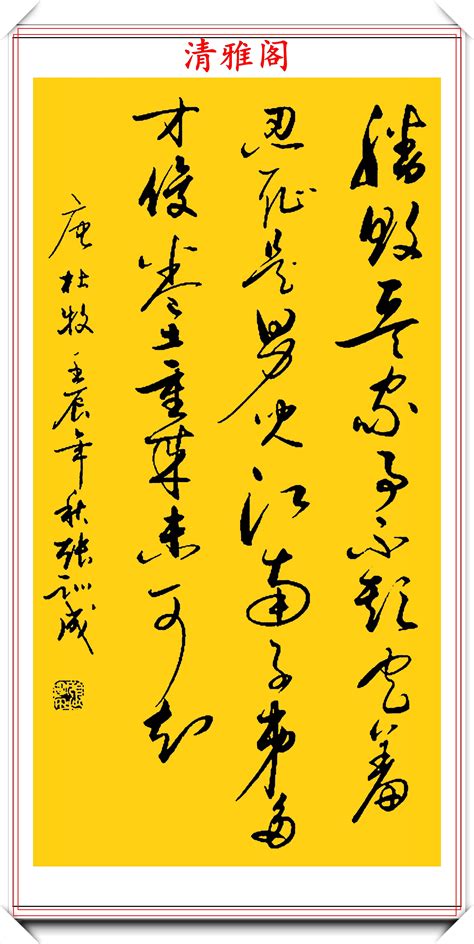 清雅阁
勝敗兵家事不期包羞
忍耻是男儿江南子弟多
才俊卷土重来未可知
唐杜牧壬辰年秋張訓成